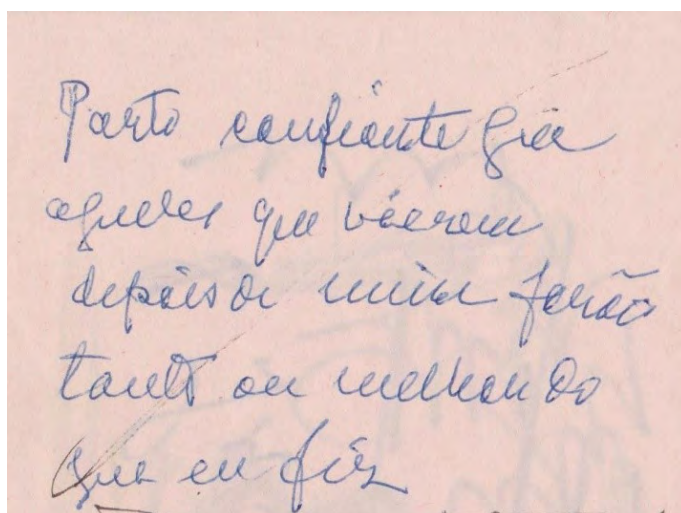 Parto confiante que
aqueles que vierem
depois de mim farão
tanto ou melhor do
que eu fiz